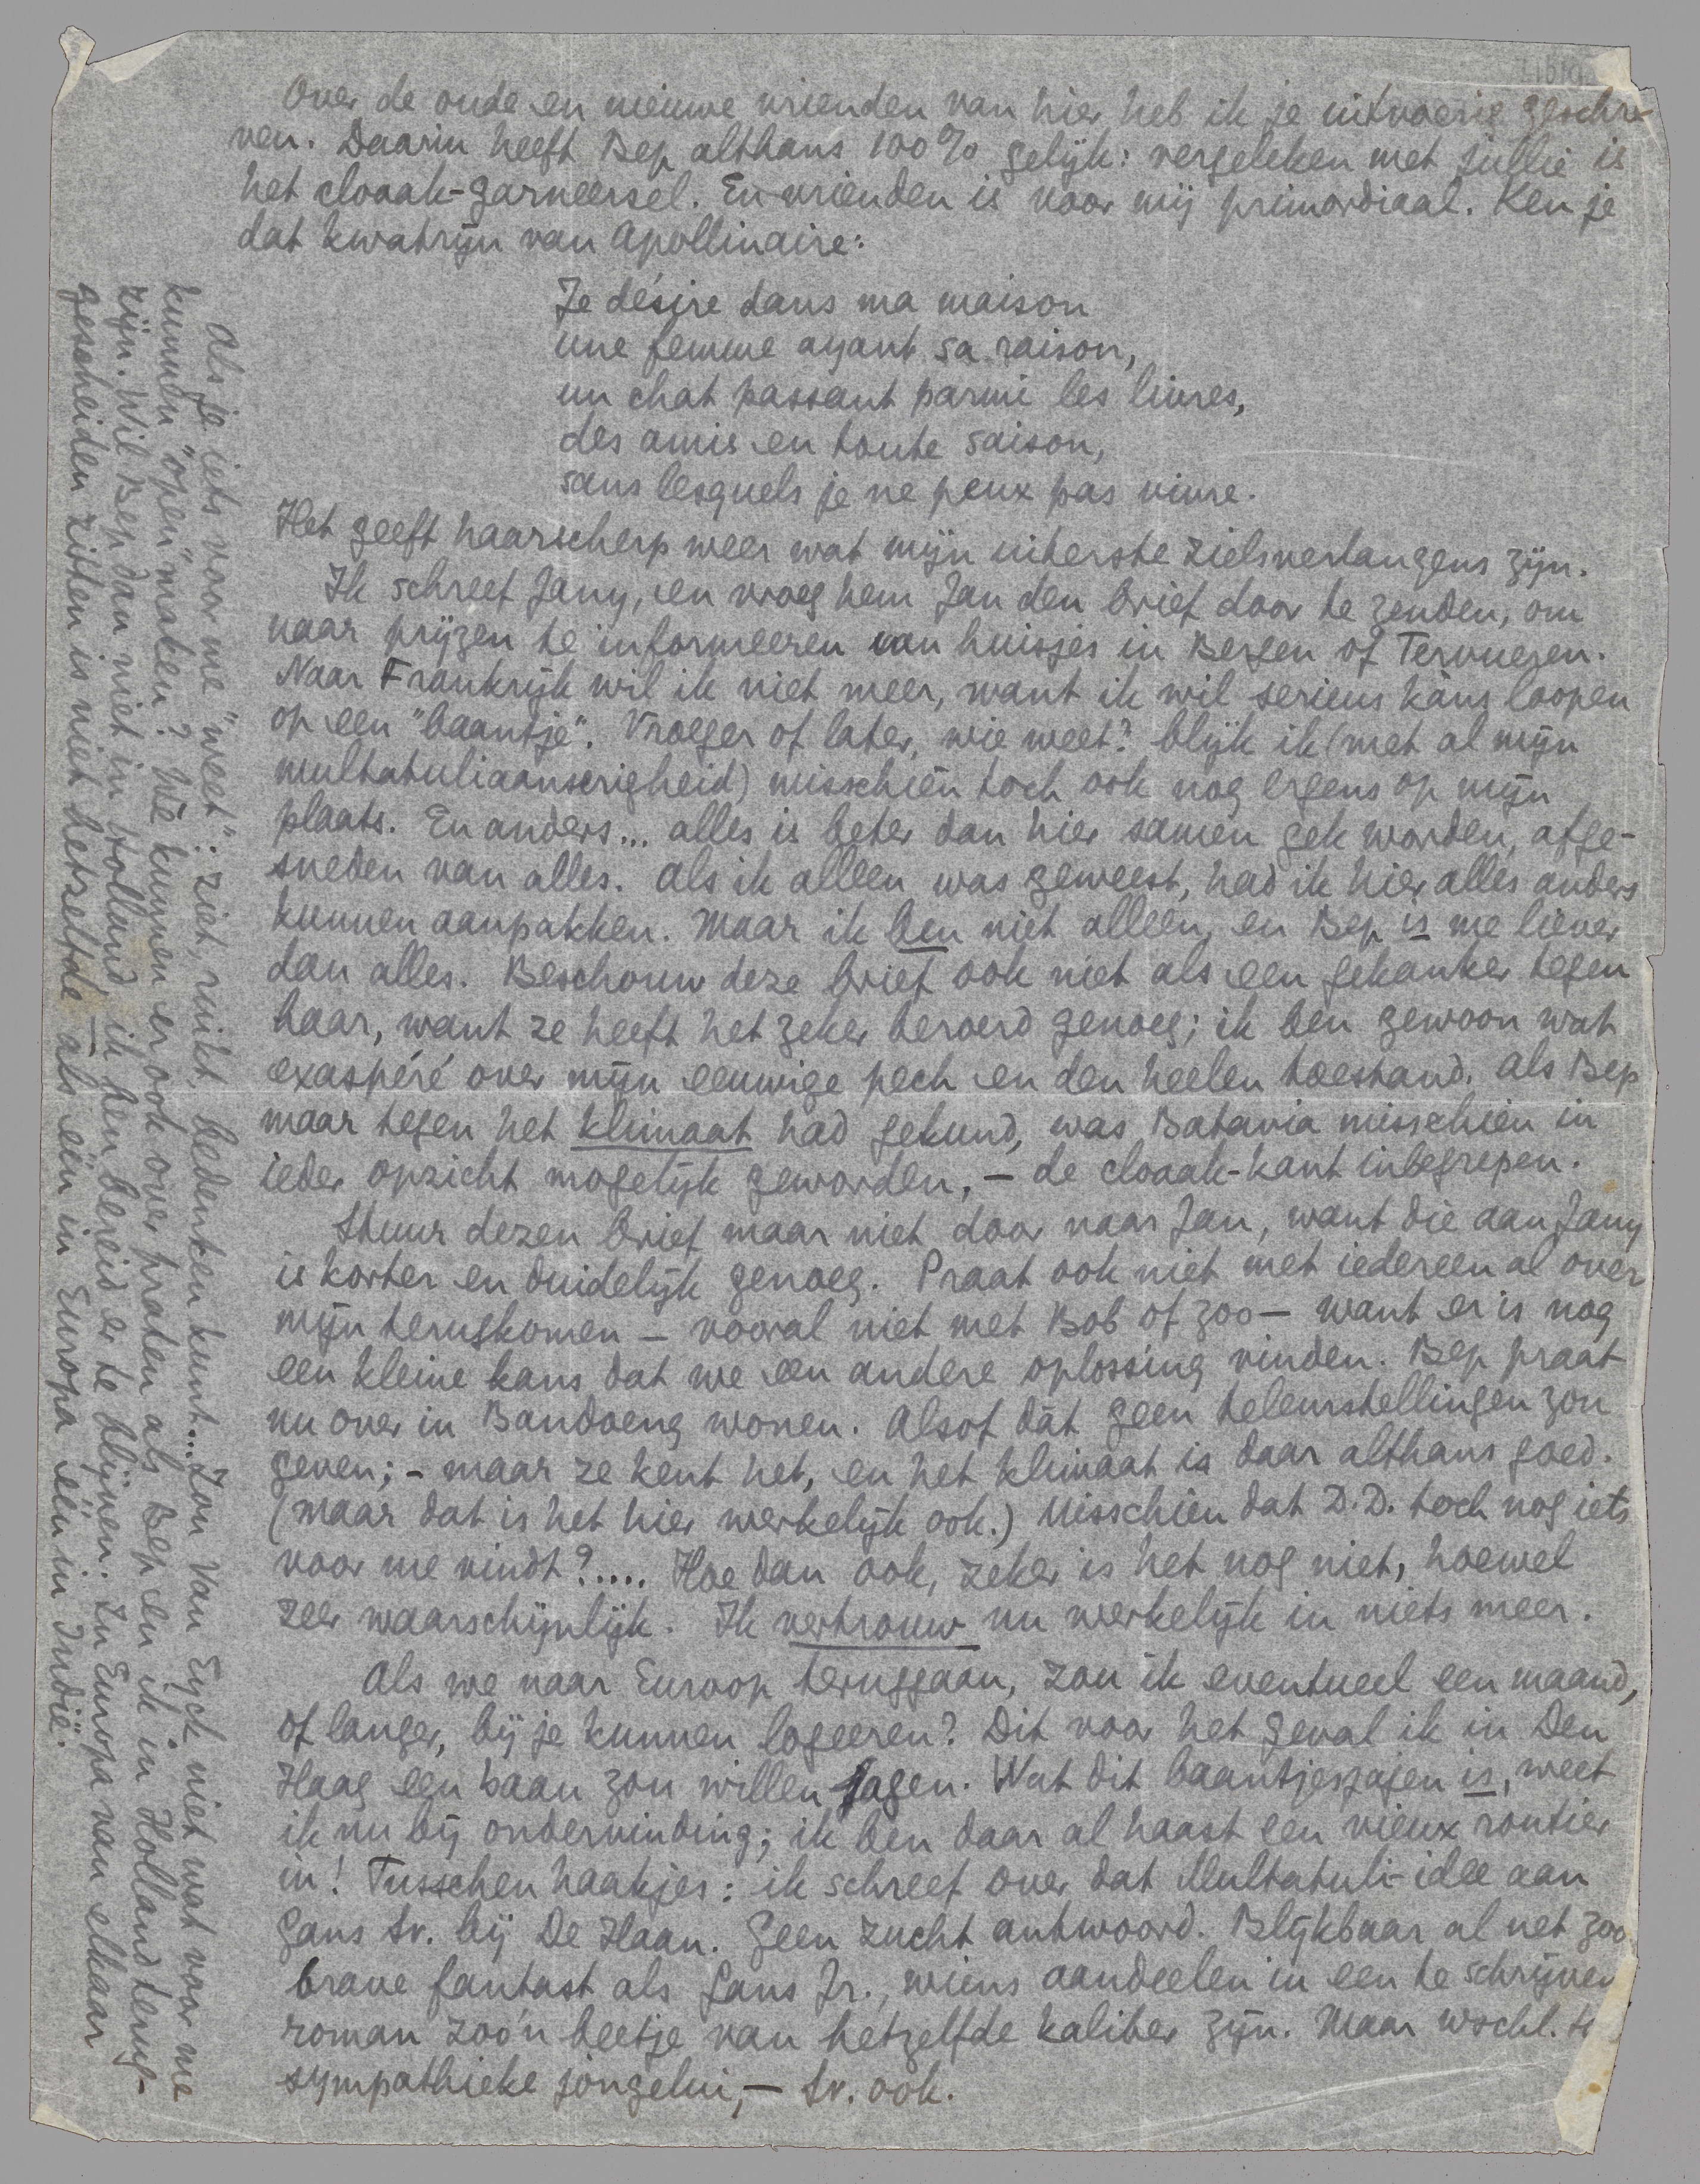 Over de oude en nieuwe vrienden van hier heb ik je uitvoerig geschre-
ven. Daarin heeft Bep althans 100% gelijk: vergeleken met jullie is
het cloaak-garneersel. En vrienden is voor mij primordiaal. Ken je
dat kwatrijn van Apollinaire:
Je désire dans ma maison
une femme ayant sa raison,
un chat passant parmi les livres,
des amis en toute saison,
sans lesquels je ne peux pas vivre.
Het geeft haarscherp weer wat mijn uiterste zielsverlangens zijn.
Ik schreef Jany, en vroeg hem Jan den brief door te zenden, om
naar prijzen te informeeren van huisjes in Bergen of Tervueren.
Naar Frankrijk wil ik niet meer, want ik wil serieus kàns loopen
op een "baantje". Vroeger of later, wie weet? blijk ik (met al mijn
multatuliaanserigheid) misschien toch ook nog ergens op mijn
plaats. En anders... alles is beter dan hier samen gek worden, afge-
sneden van alles. Als ik alleen was geweest, had ik hier alles anders
kunnen aanpakken. Maar ik ben niet alleen, en Bep is me liever
dan alles. Beschouw deze brief ook niet als een gekanker tegen
haar, want ze heeft het zeker beroerd genoeg; ik ben gewoon wat
exaspéré over mijn eeuwige pech en den heelen toestand. Als Bep
maar tegen het klimaat had gekund, was Batavia misschien in
ieder opzicht mogelijk geworden, — de cloaak-kant inbegrepen.
Stuur dezen brief maar niet door naar Jan, want die aan Jany
is korter en duidelijk genoeg. Praat ook niet met iedereen al over
mijn terugkomen — vooral niet met Bob of zoo — want er is nog
een kleine kans dat we een andere oplossing vinden. Bep praat
nu over in Bandoeng wonen. Alsof dát geen teleurstellingen zou
geven; - maar ze kent het, en het klimaat is daar althans goed.
(Maar dat is het hier werkelijk ook.) Misschien dat D.D. toch nog iets
voor me vindt?..... Hoe dan ook, zeker is het nog niet, hoewel
zeer waarschijnlijk. Ik vertrouw nu werkelijk in niets meer.
Als we naar Euroop teruggaan, zou ik eventueel een maand,
of langer, bij je kunnen logeeren? Dit voor het geval ik in Den
Haag een baan zou willen jagen. Wat dit baantjesjagen is, weet
ik nu bij ondervinding; ik ben daar al haast een vieux routier
in! Tusschen haakjes: ik schreef over dat Multatuli-idee aan
Gans Sr. bij De Haan. Geen zucht antwoord. Blijkbaar al net zoo
brave fantast als Gans Jr., wiens aandeelen in een te schrijven
roman zoo'n beetje van hetzelfde kaliber zijn. Maar wschl.
sympathieke jongelui, — Sr. ook.
Als je iets voor me "weet": ziet, ruikt, bedenken kunt... Zou Van Eyck niet wat voor me
kunnen "open" maken? We kunnen er ook over praten als Bep en ik in Holland terug-
zijn. Wil Bep dan niet in Holland, ik ben bereid er te blijven. In Europa van elkaar
gescheiden zitten is niet hetzelfde als één in Europa één in Indië.